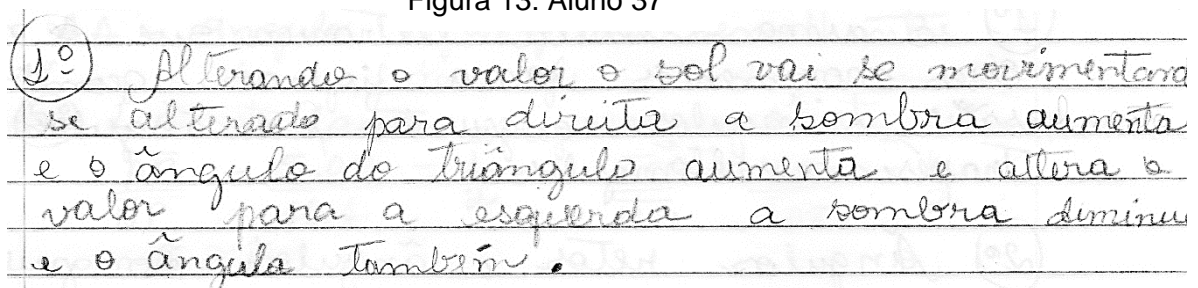 Figura 13: Aluno 37
1º) Alterando o valor o sol vai se movimentand
se alterado para direita a sombra aumenta
e o ângulo do triângulo aumenta e altera o
valor para a esquerda a sombra diminui
e o ângulo também.